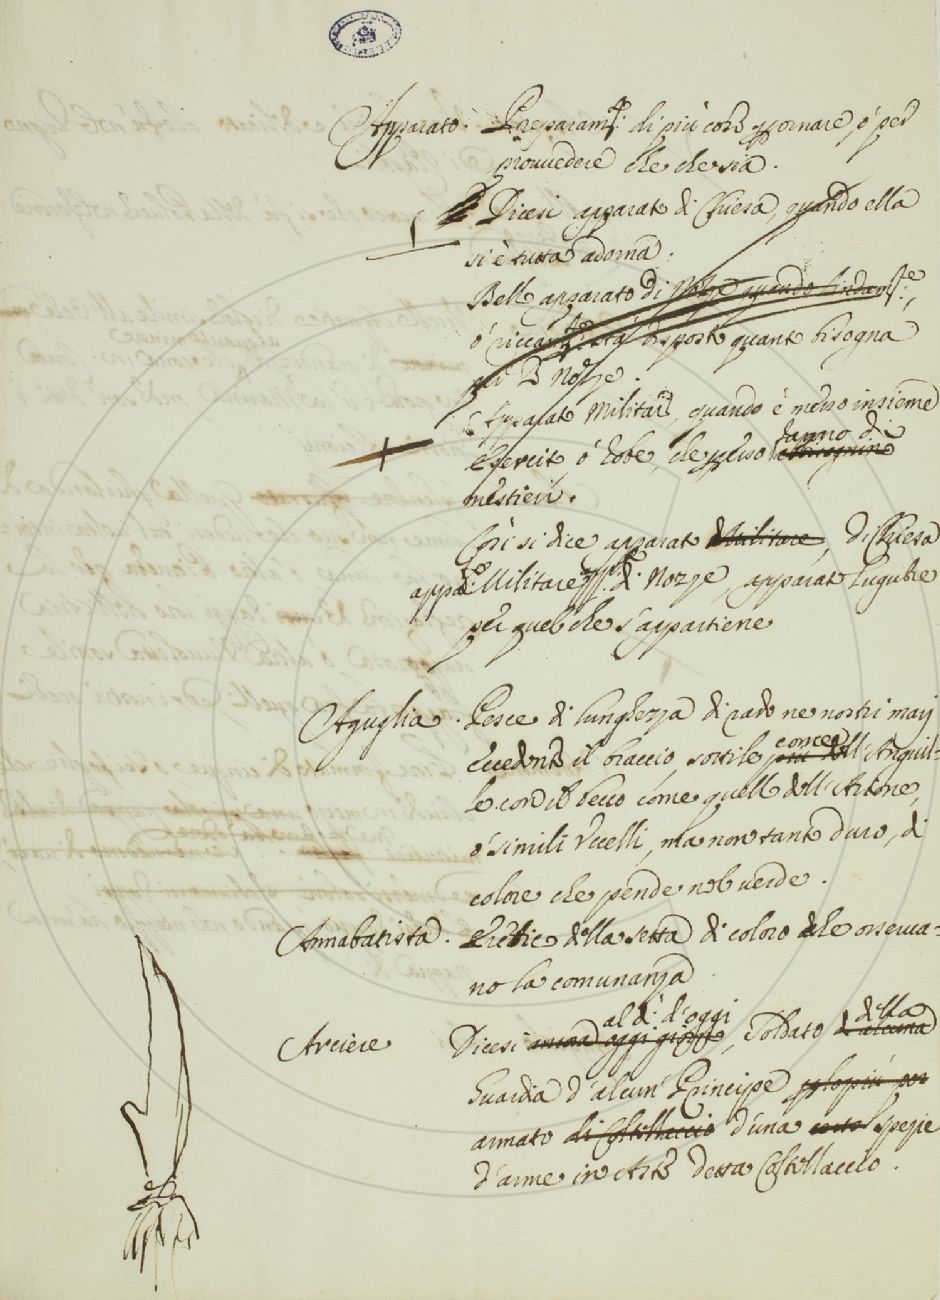 Apparato. Preparam.to di più cose p ornare, ó per
prouuedere che che sia.
Dicesi apparato di Chiesa, quando ella
si è tutta adorna.
Bell apparato di Nozze quando
disposte quante bisogna
per Nozze.
Apparato Militare, quando è messo insieme
esercito, ó robe, che spesso
fanno di
mestieri.
Così si dice apparato Militare, di Chiesa
app.to Militare, di Nozze, apparato lugubre
per quel che s'appartiene
Aguglia. Pesce di lunghezza di rado ne nostri marj
eccedente il braccio, sottile più dell'Anguil=
come
le con il becco come quello dell'Aitone,
ó simili Vccelli, ma non tanto duro, di
colore che pende nel uerde.
Annabatista. Eretico della setta di coloro che osserua=
no la comunanza
al dì d'oggi della
Arciere Dicesi ancora oggi, soldato d'alcuna
Guardia d'alcun Principe p lo più per
armato di Coltellaccio d'una certa spezie
d'arme in Aste detta Coltellaccio.